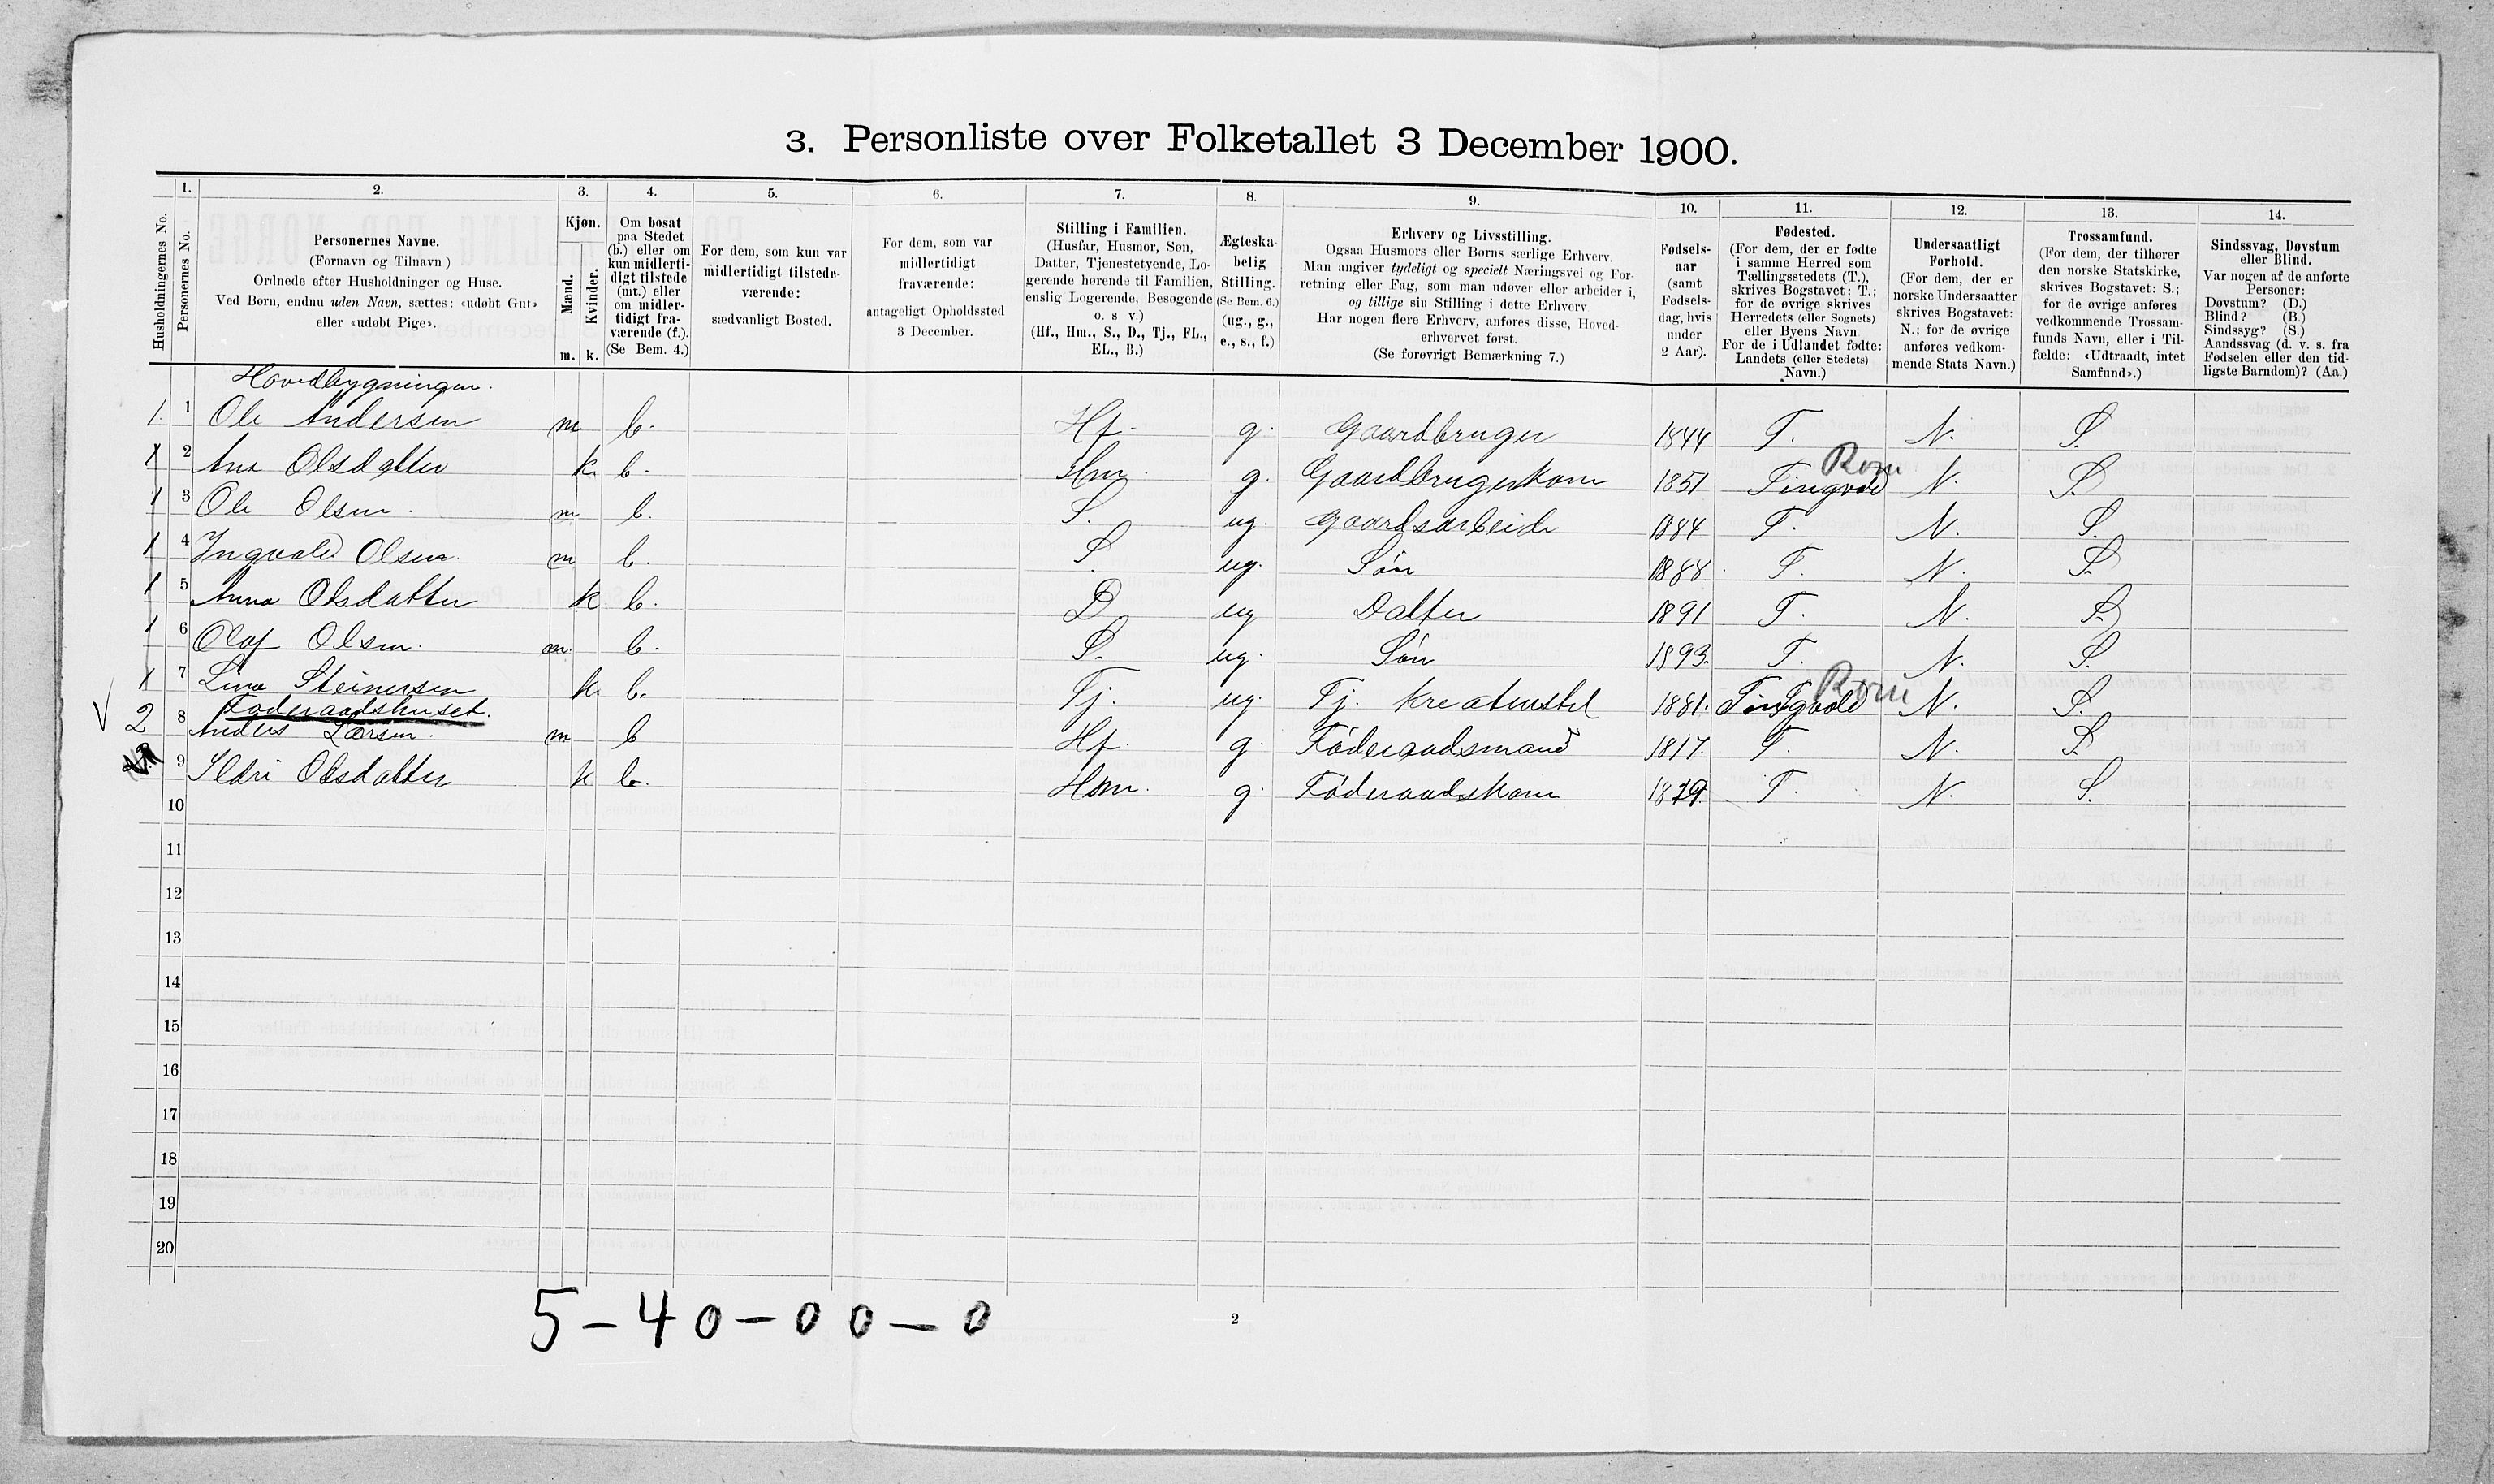 3. Personliste over Folketallet 3 December 1900.
1. 2. 3. 4. 5. 6. 7. 8. 9. 10. 11. 12. 13. 14.
Husholdningernes No.
Personernes No.
Personernes Navne.
(Fornavn og Tilnavn)
Ordnede efter Husholdninger og Huse.
Ved Børn, endnu uden Navn, sættes: «udøbt Gut»
eller «udøbt Pige».
Kjøn.
Mænd.
Kvinder.
m. k.
Om bosat
paa Stedet
(b.) eller om
kun midlerti-
digt tilstede
(mt.) eller
om midler-
tidigt fra-
værende (f.).
(Se Bem. 4.)
For dem, som kun var
midlertidigt tilstede-
værende:
sædvanligt Bosted.
For dem, som var
midlertidigt
fraværende:
antageligt Opholdssted
3 December.
Stilling i Familien.
(Husfar, Husmor, Søn,
Datter, Tjenestetyende, Lo-
gerende hørende til Familien,
enslig Logerende, Besøgende
o. s v.)
(Hf., Hm., S., D., Tj., FL.,
EL., B.)
Ægteska-
belig
Stilling.
(Se Bem. 6.)
(ug., g.,
e., s., f.)
Erhverv og Livsstilling.
Ogsaa Husmors eller Børns særlige Erhverv.
Man angiver tydeligt og specielt Næringsvei og For-
retning eller Fag, som man udøver eller arbeider i,
og tillige sin Stilling i dette Erhverv
Har nogen flere Erhverv, anføres disse, Hoved-
erhvervet først.
(Se forøvrigt Bemærkning 7.)
Fødsels-
aar
(samt
Fødsels-
dag, hvis
under
2 Aar).
Fødested.
(For dem, der er fødte
i samme Herred som
Tællingsstedets (T.),
skrives Bogstavet: T.;
for de øvrige skrives
Herredets (eller Sognets)
eller Byens Navn
For de i Udlandet fødte:
Landets (eller Stedets)
Navn.)
Undersaatligt
Forhold.
(For dem, der er
norske Undersaatter
skrives Bogstavet:
N.; for de øvrige
anføres vedkom-
mende Stats Navn.)
Trossamfund.
(For dem, der tilhører
den norske Statskirke,
skrives Bogstavet: S.;
for de øvrige anføres
vedkommende Trossam-
funds Navn, eller i Til-
fælde: «Udtraadt, intet
Samfund».)
Sindssvag, Døvstum
eller Blind.
Var nogen af de anførte
Personer:
Døvstum? (D.)
Blind? (B.)
Sindssyg? (S.)
Aandssvag (d. v. s. fra
Fødselen eller den tid-
ligste Barndom)? (Aa.)
Hovedbygningen.
1. 1 Ole Andersen m b. Hf. g. Gaardbruger 1844 T. N. S.
1 2 Ana Olsdatter k. b. Hm. g. Gaardbrugerkone 1851 Tingvold Rom N. S.
1 3 Ole Olsen. m b. S. ug. Gaardsarbeide 1884 T. N. S.
1 4 Ingvald Olsen. m b. S. ug. Søn 1888 T. N. S.
1 5 Anna Olsdatter k b. D. ug Datter 1891 T. N. S.
1 6 Olaf Olsen. m. b. S. ug. Søn 1893. T. N. S.
1 7 Lina Steinersen k. b. Tj. ug. Tj. Kreaturstel 1881. Tingvold Rom N. S.
Føderaadshuset.
2 8 Anders Larsen. m b Hf. g. Føderaadsmand 1817. T. N. S.
9 Ildri Olsdatter k b. Hm. g. Føderaadskone T. N. S.
10
11
12
13
14
15
16
17
18
19
20
5-40-00-0
2